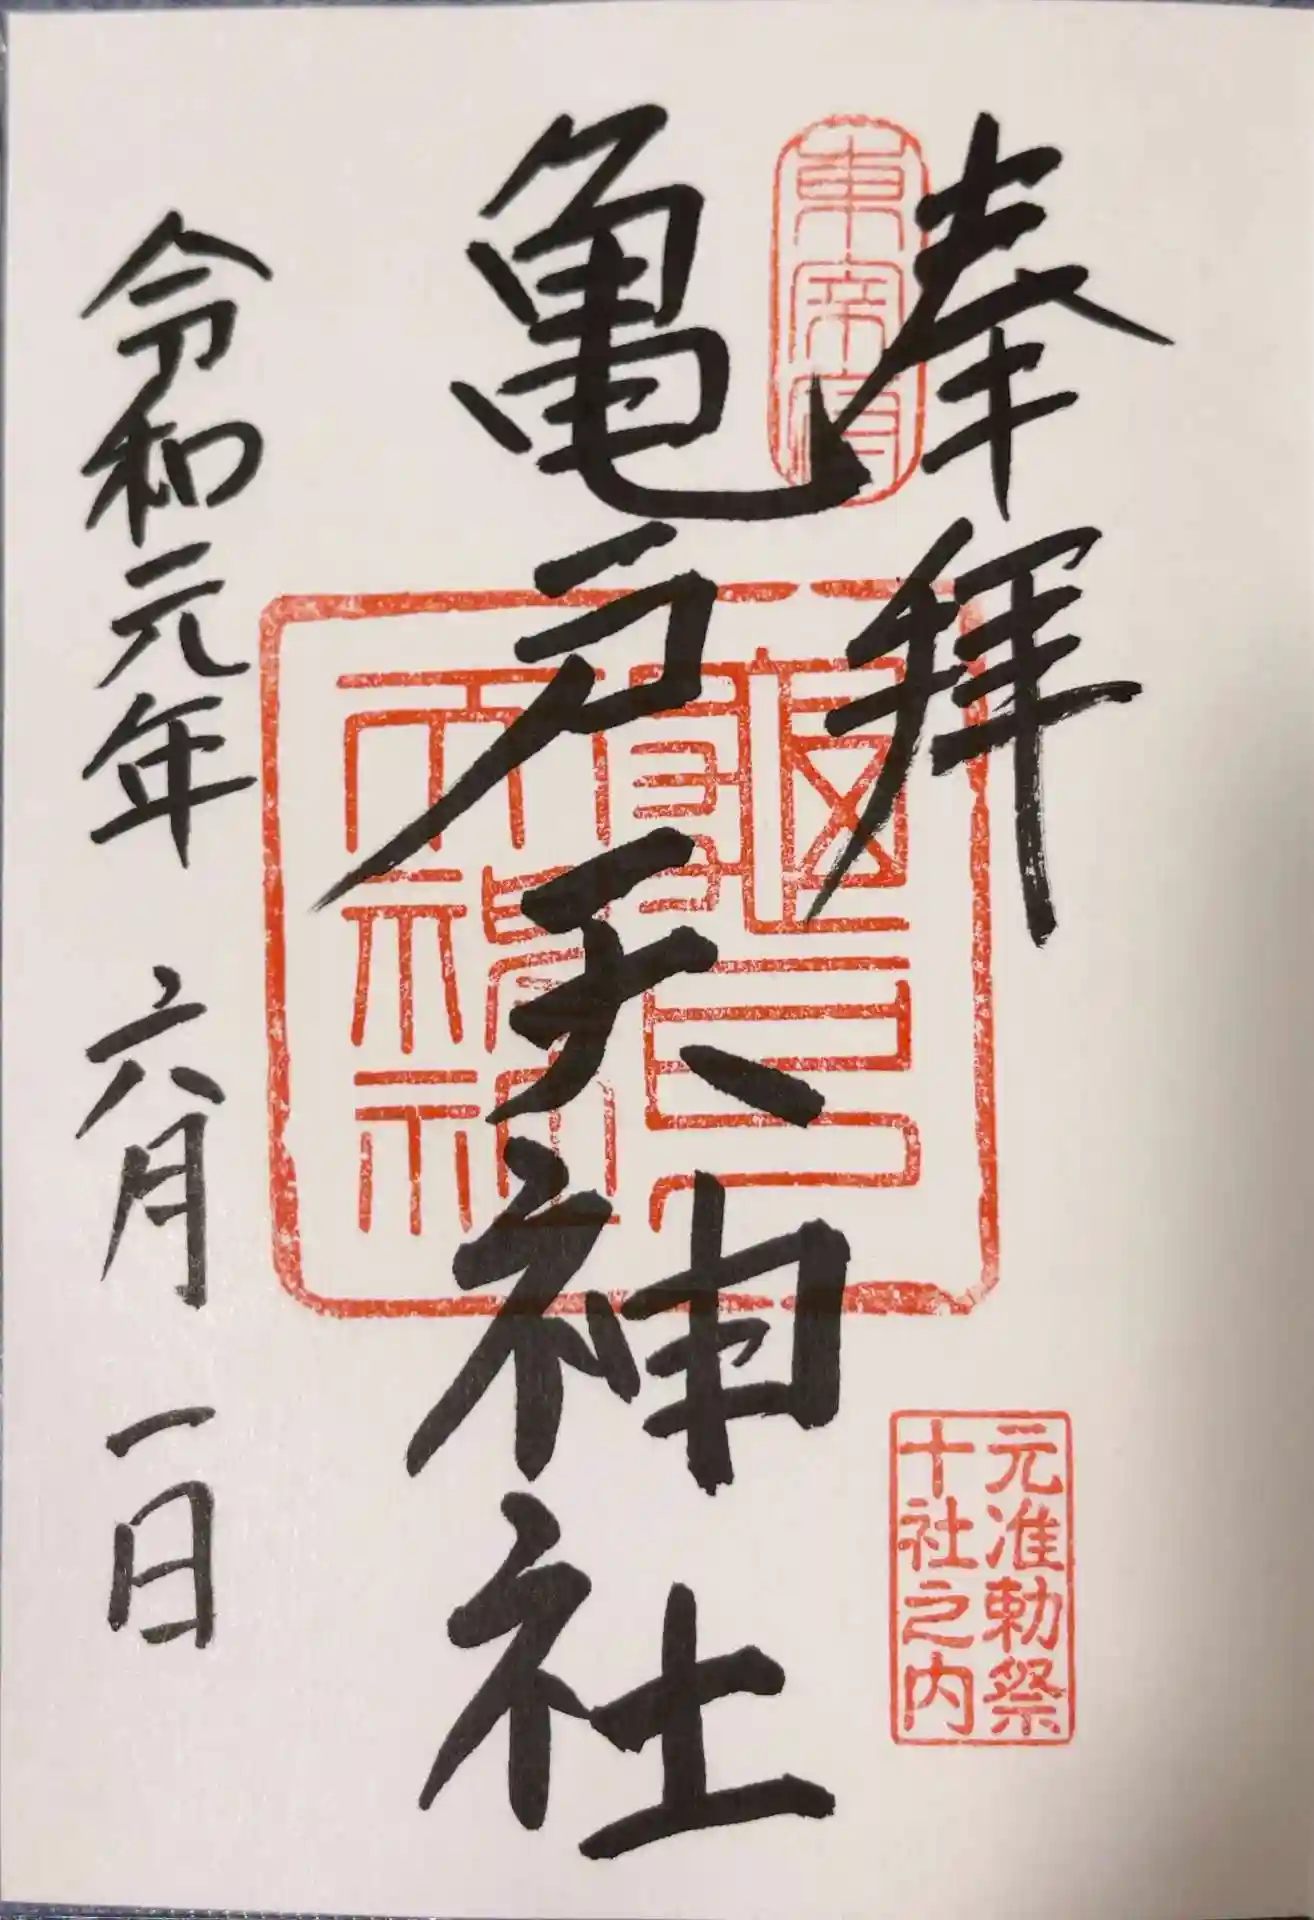 奉拝
東宰府
亀戸天神社
元准勅祭
十社之内
令和元年 六月 一日